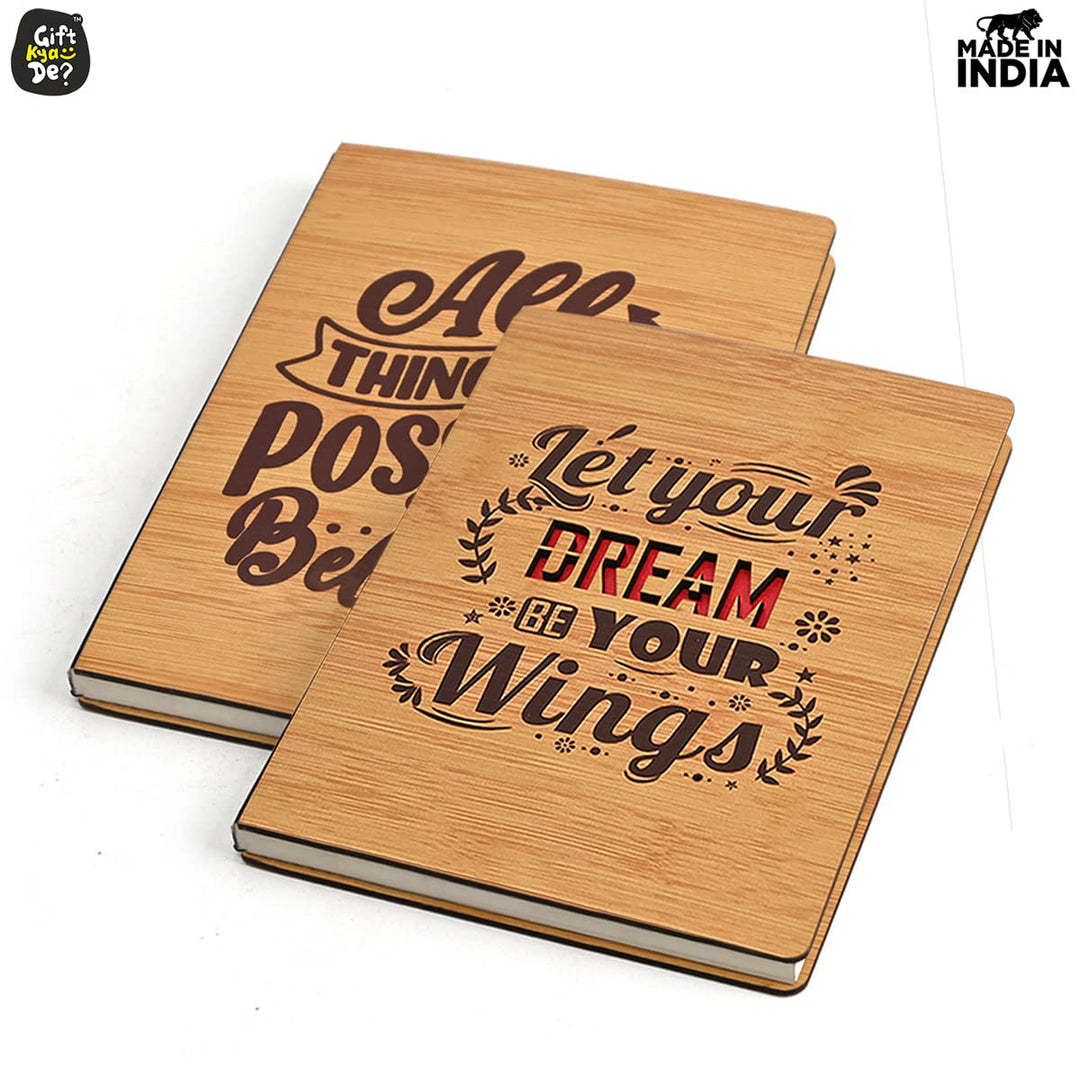 Gift
Kya
De?
TM
MADE IN
INDIA
All
THIN
POSS
Be
Let your
DREAM
BE YOUR
Wings